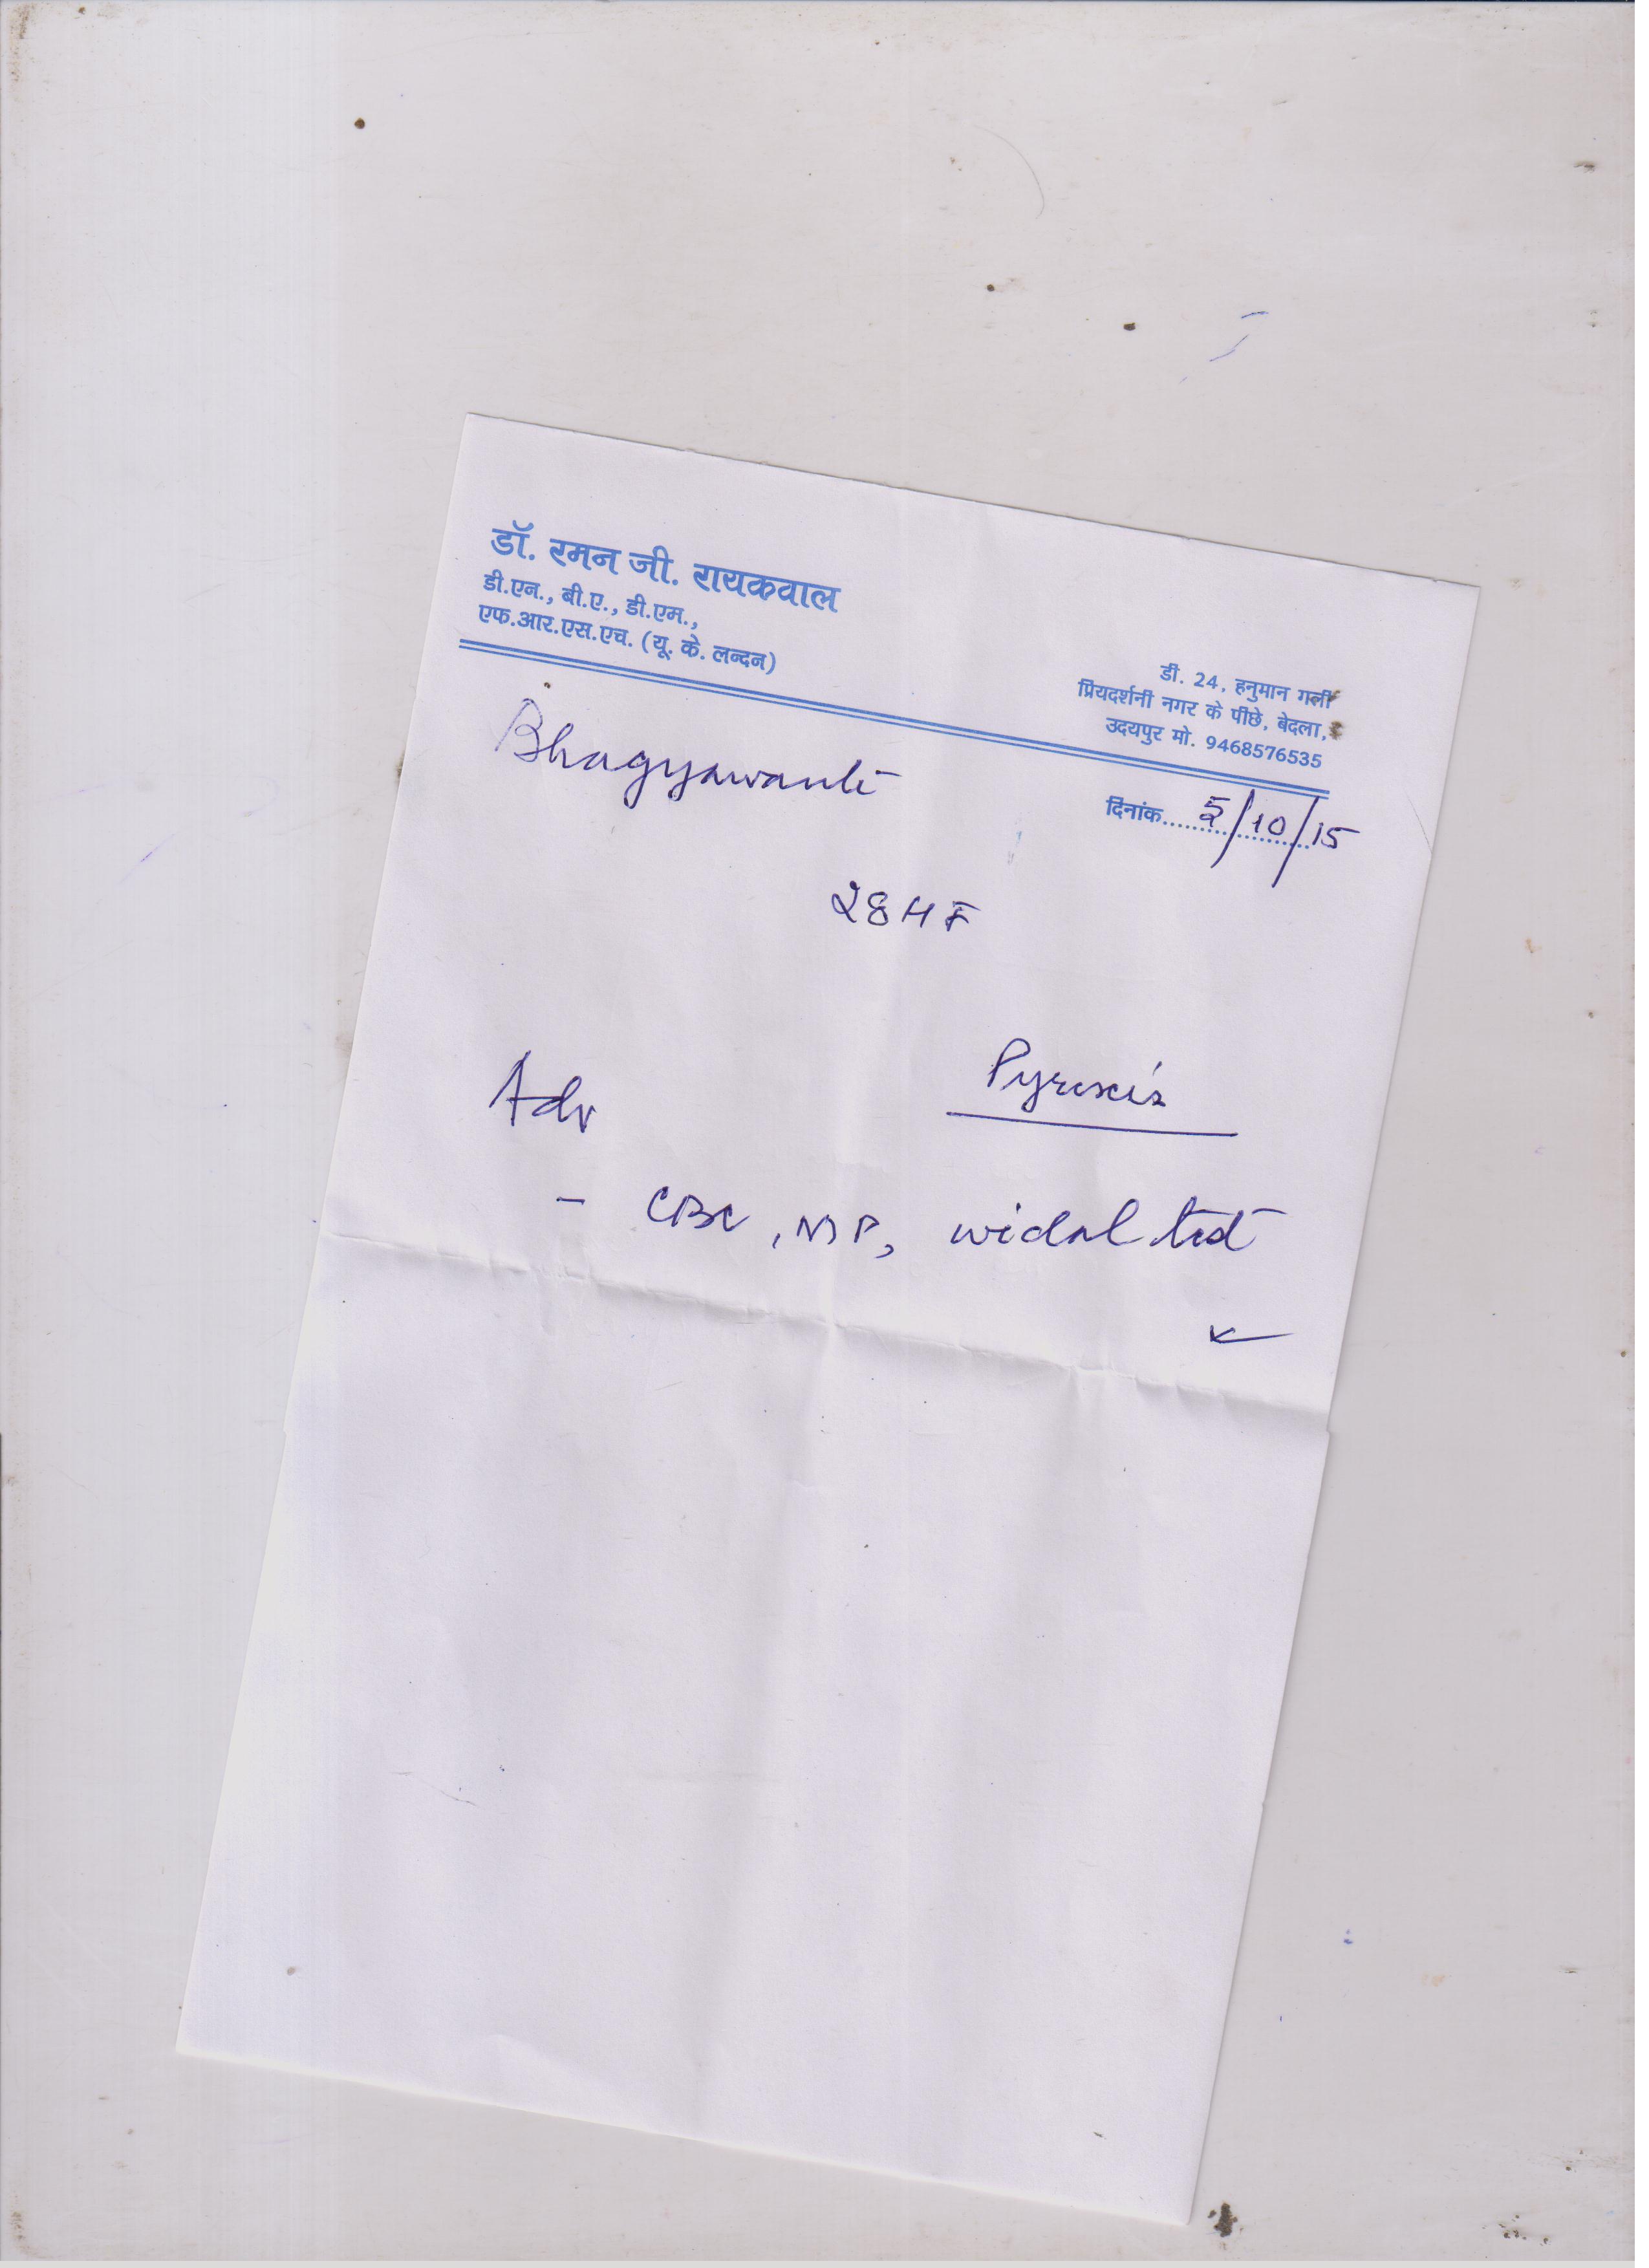 डॉ. रमन जी. रायकवाल
डी.एन., बी.ए., डी.एम.,
एफ.आर.एस.एच. (यू. के. लन्दन)
डी. 24, हनुमान गली
प्रियदर्शनी नगर के पीछे, बेदला,
उदयपुर मो. 9468576535
दिनांक 5/10/15
Bhagyawanti
28 H F
Pyrexia
Adv
- CBC, MP, widal test